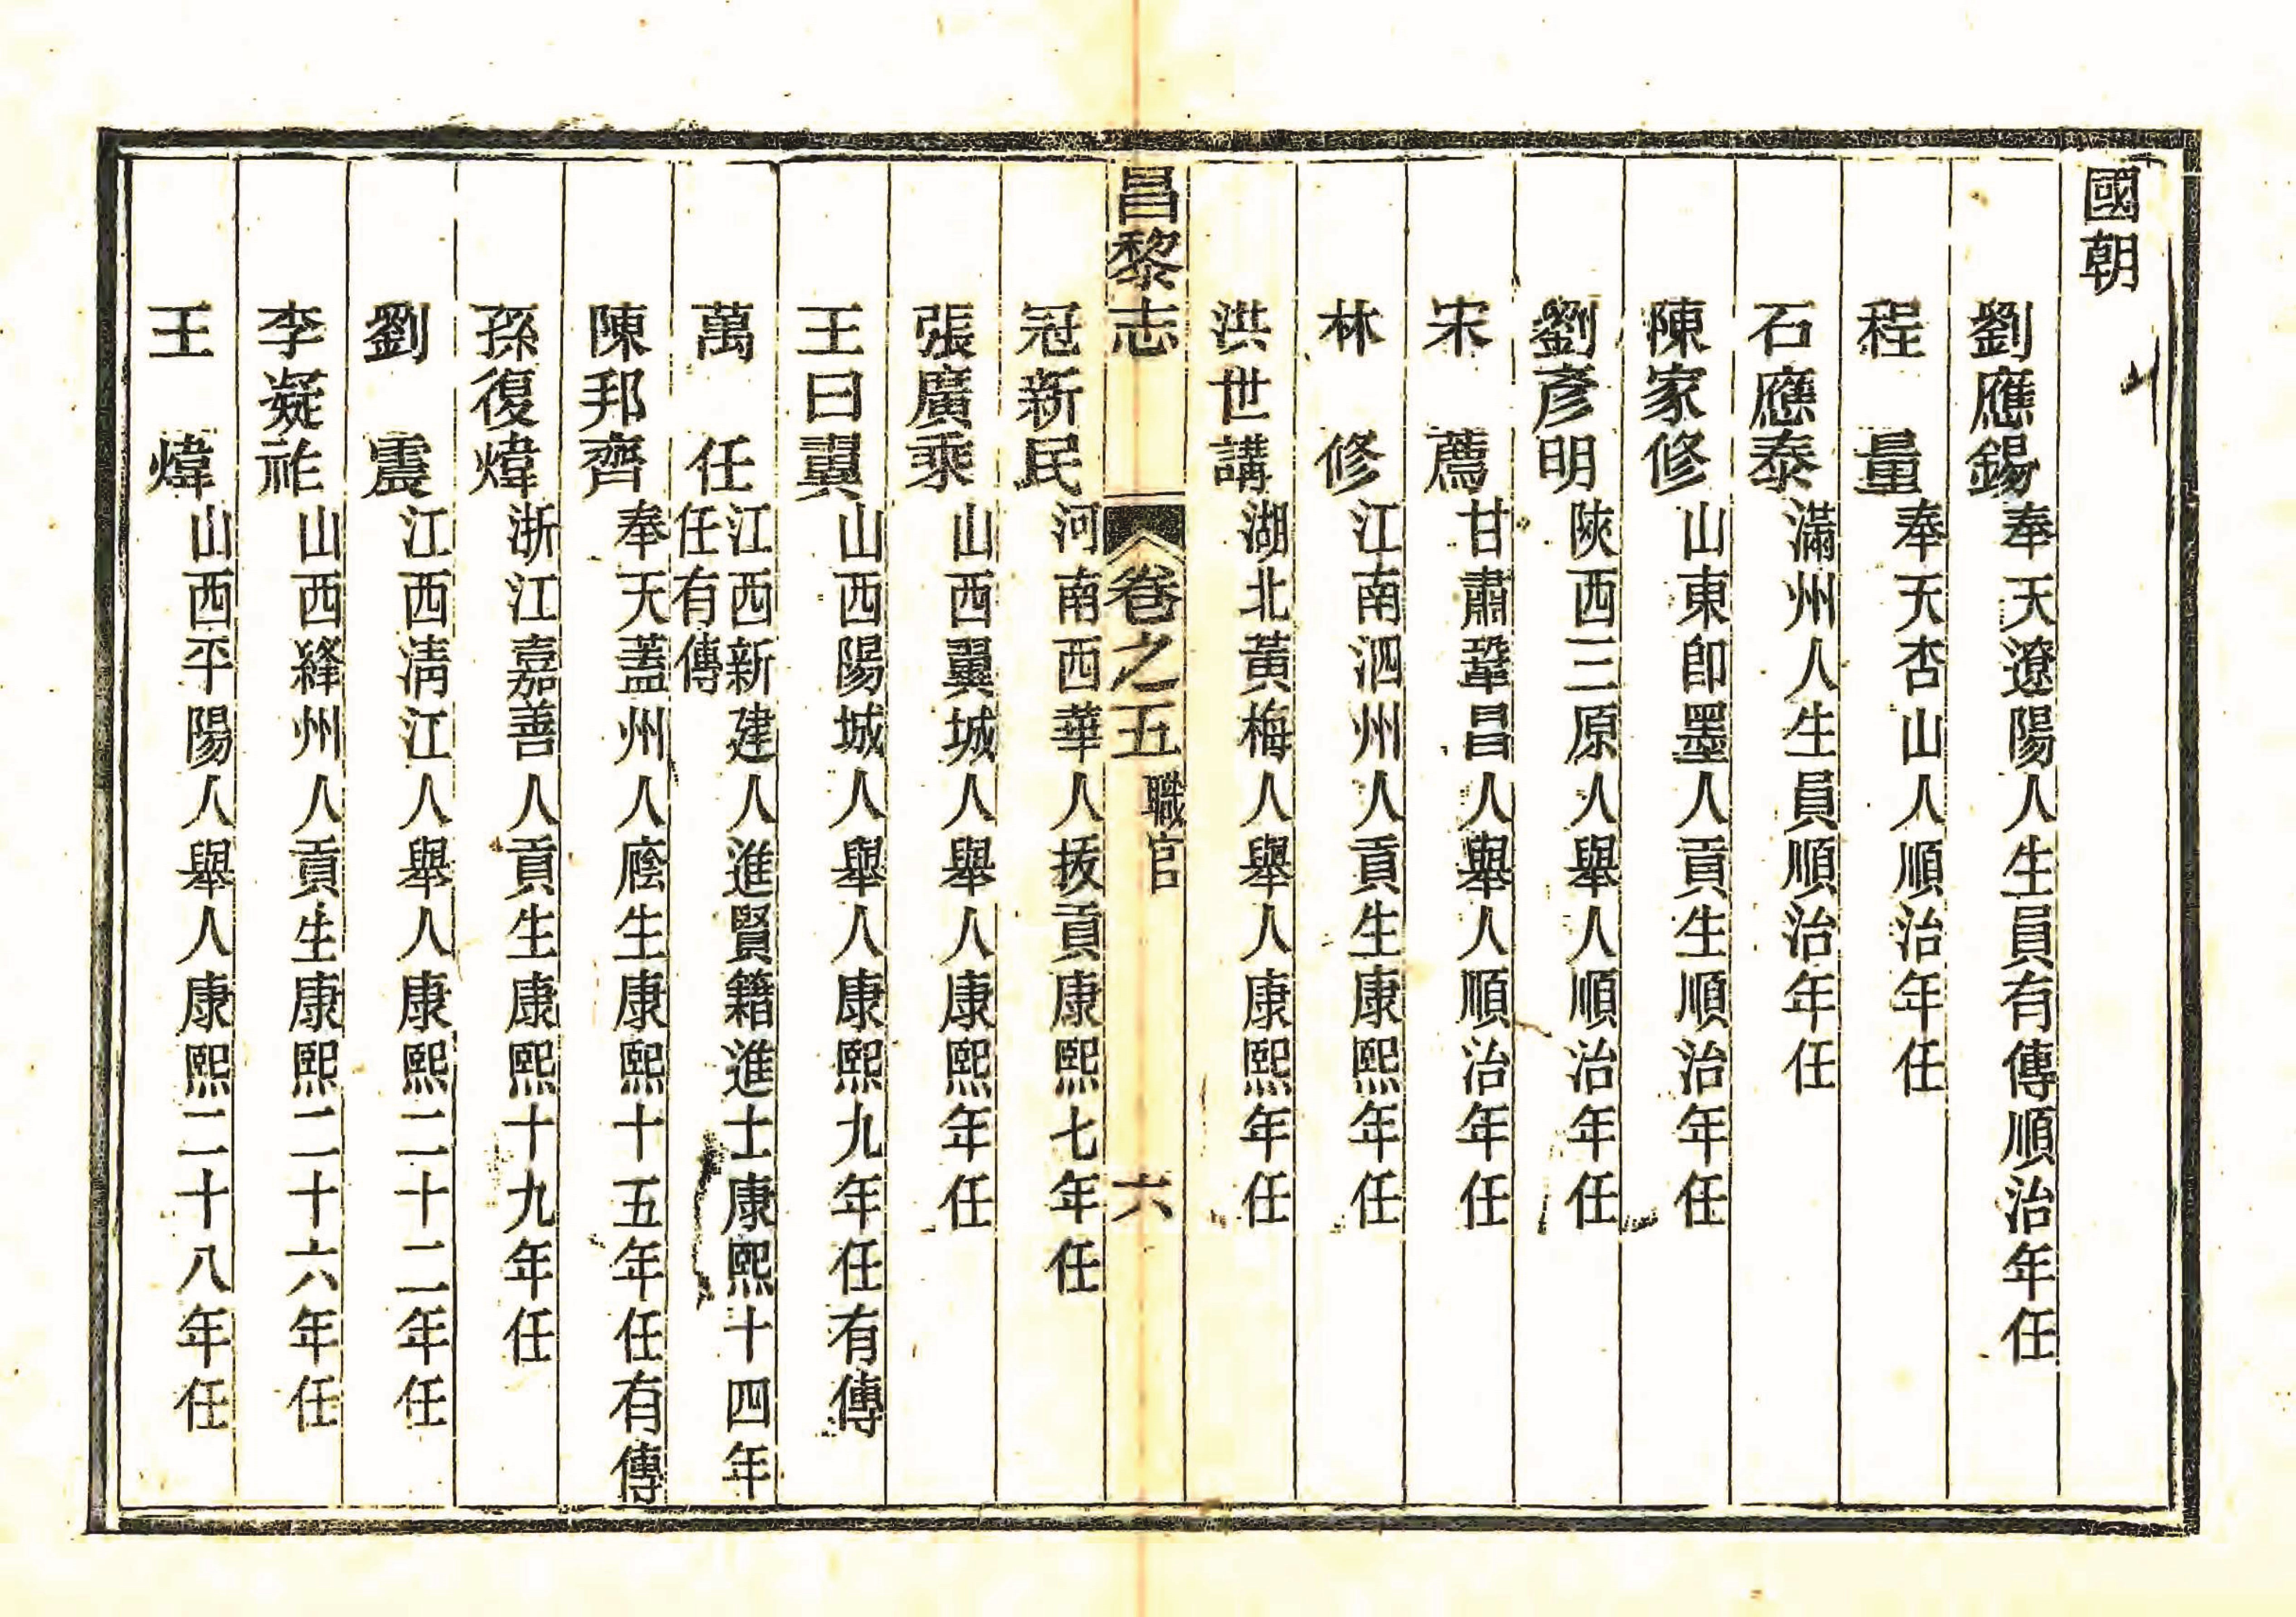 國朝
劉應錫奉天遼陽人生員有傳順治年任
程量奉天杏山人順治年任
石應泰滿州人生員順治年任
陳家修山東卽墨人貢生順治年任
劉彥明陜西三原人舉人順治年任
宋薦甘肅鞏昌人舉人順治年任
林修江南泗州人貢生康熙年任
洪世講湖北黃梅人舉人康熙年任
昌黎志 卷之五 職官 六
冦新民河南西華人拔貢康熙七年任
張廣乘山西翼城人舉人康熙年任
王曰翼山西陽城人舉人康熙九年任有傳
萬任江西新建人進賢籍進士康熙十四年
任有傳
陳邦齊奉天蓋州人廕生康熙十五年任有傳
孫復煒浙江嘉善人貢生康熙十九年任
劉震江西淸江人舉人康熙二十二年任
李凝祚山西絳州人貢生康熙二十六年任
王煒山西平陽人舉人康熙二十八年任